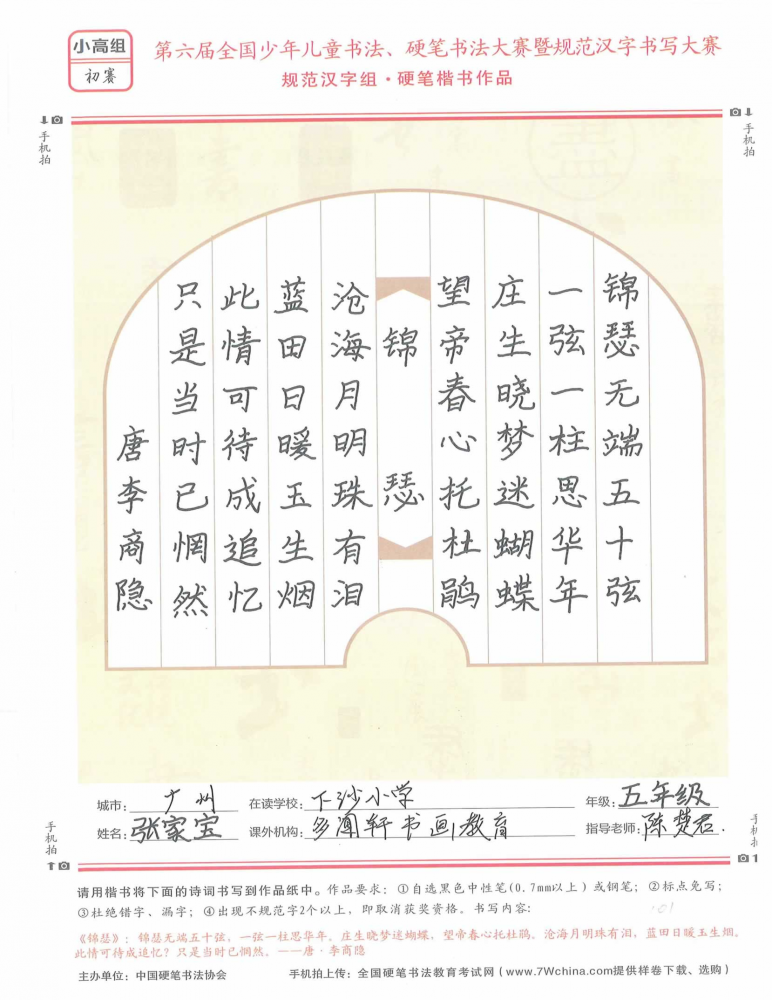 小高组
初赛
第六届全国少年儿童书法、硬笔书法大赛暨规范汉字书写大赛
规范汉字组·硬笔楷书作品
手机拍
手机拍
锦瑟无端五十弦
一弦一柱思华年
庄生晓梦迷蝴蝶
望帝春心托杜鹃
锦瑟
沧海月明珠有泪
蓝田日暖玉生烟
此情可待成追忆
只是当时已惘然
唐李商隐
城市：广州 在读学校：下沙小学 年级：五年级
姓名：张家宝 课外机构：多闻轩书画教育 指导老师：陈楚君.
手机拍
手机拍
请用楷书将下面的诗词书写到作品纸中。作品要求：①自选黑色中性笔(0.7mm以上)或钢笔；②标点免写；
③杜绝错字、漏字；④出现不规范字2个以上，即取消获奖资格。书写内容：
《锦瑟》：锦瑟无端五十弦，一弦一柱思华年。庄生晓梦迷蝴蝶，望帝春心托杜鹃。沧海月明珠有泪，蓝田日暖玉生烟。
此情可待成追忆？只是当时已惘然。——唐·李商隐
主办单位：中国硬笔书法协会 手机拍上传：全国硬笔书法教育考试网（www.7Wchina.com提供样卷下载、选购）